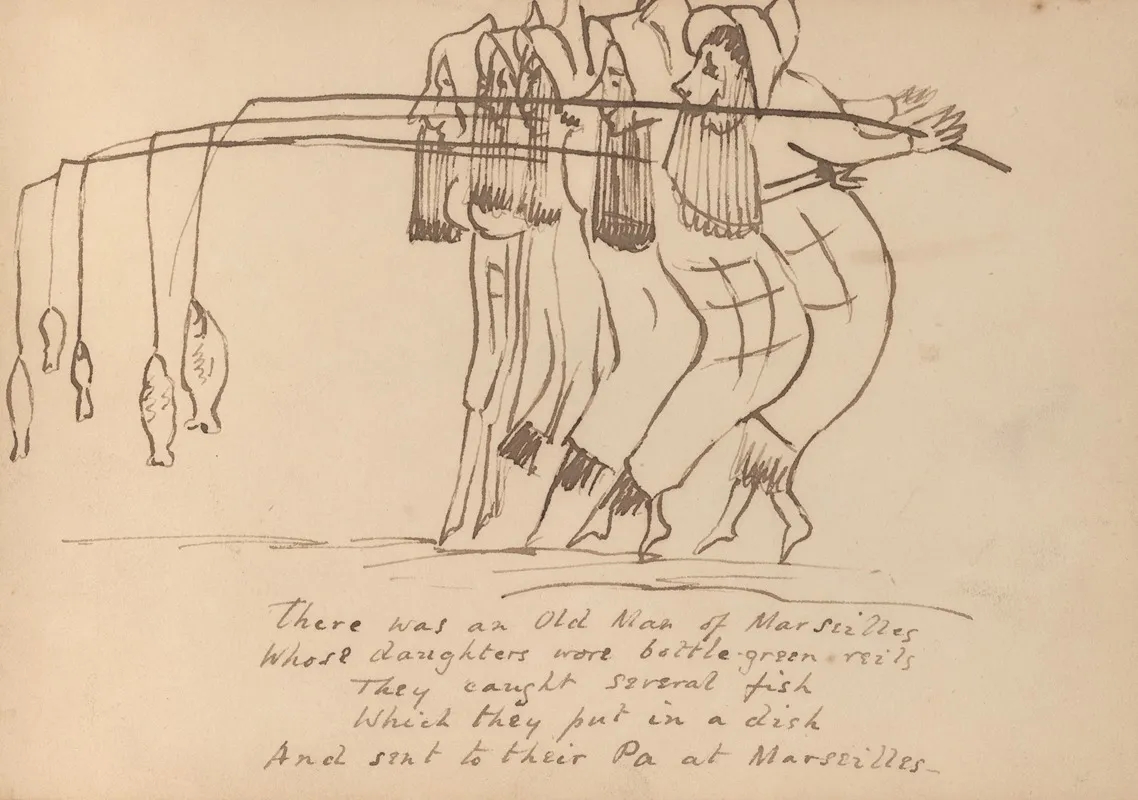 There was an Old Man of Marseilles
Whose daughters wore bottle-green veils
They caught several fish
Which they put in a dish
And sent to their Pa at Marseilles_